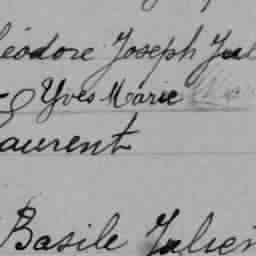 éodore Joseph Jul
Yves Marie
aurent
Basile Julien